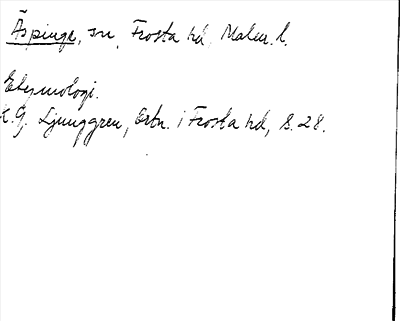 Äspinge, sn, Frosta hd. Malm. l.
Etymologi.
K.G. Ljunggren, Ortn. i Frosta hd, s. 28.